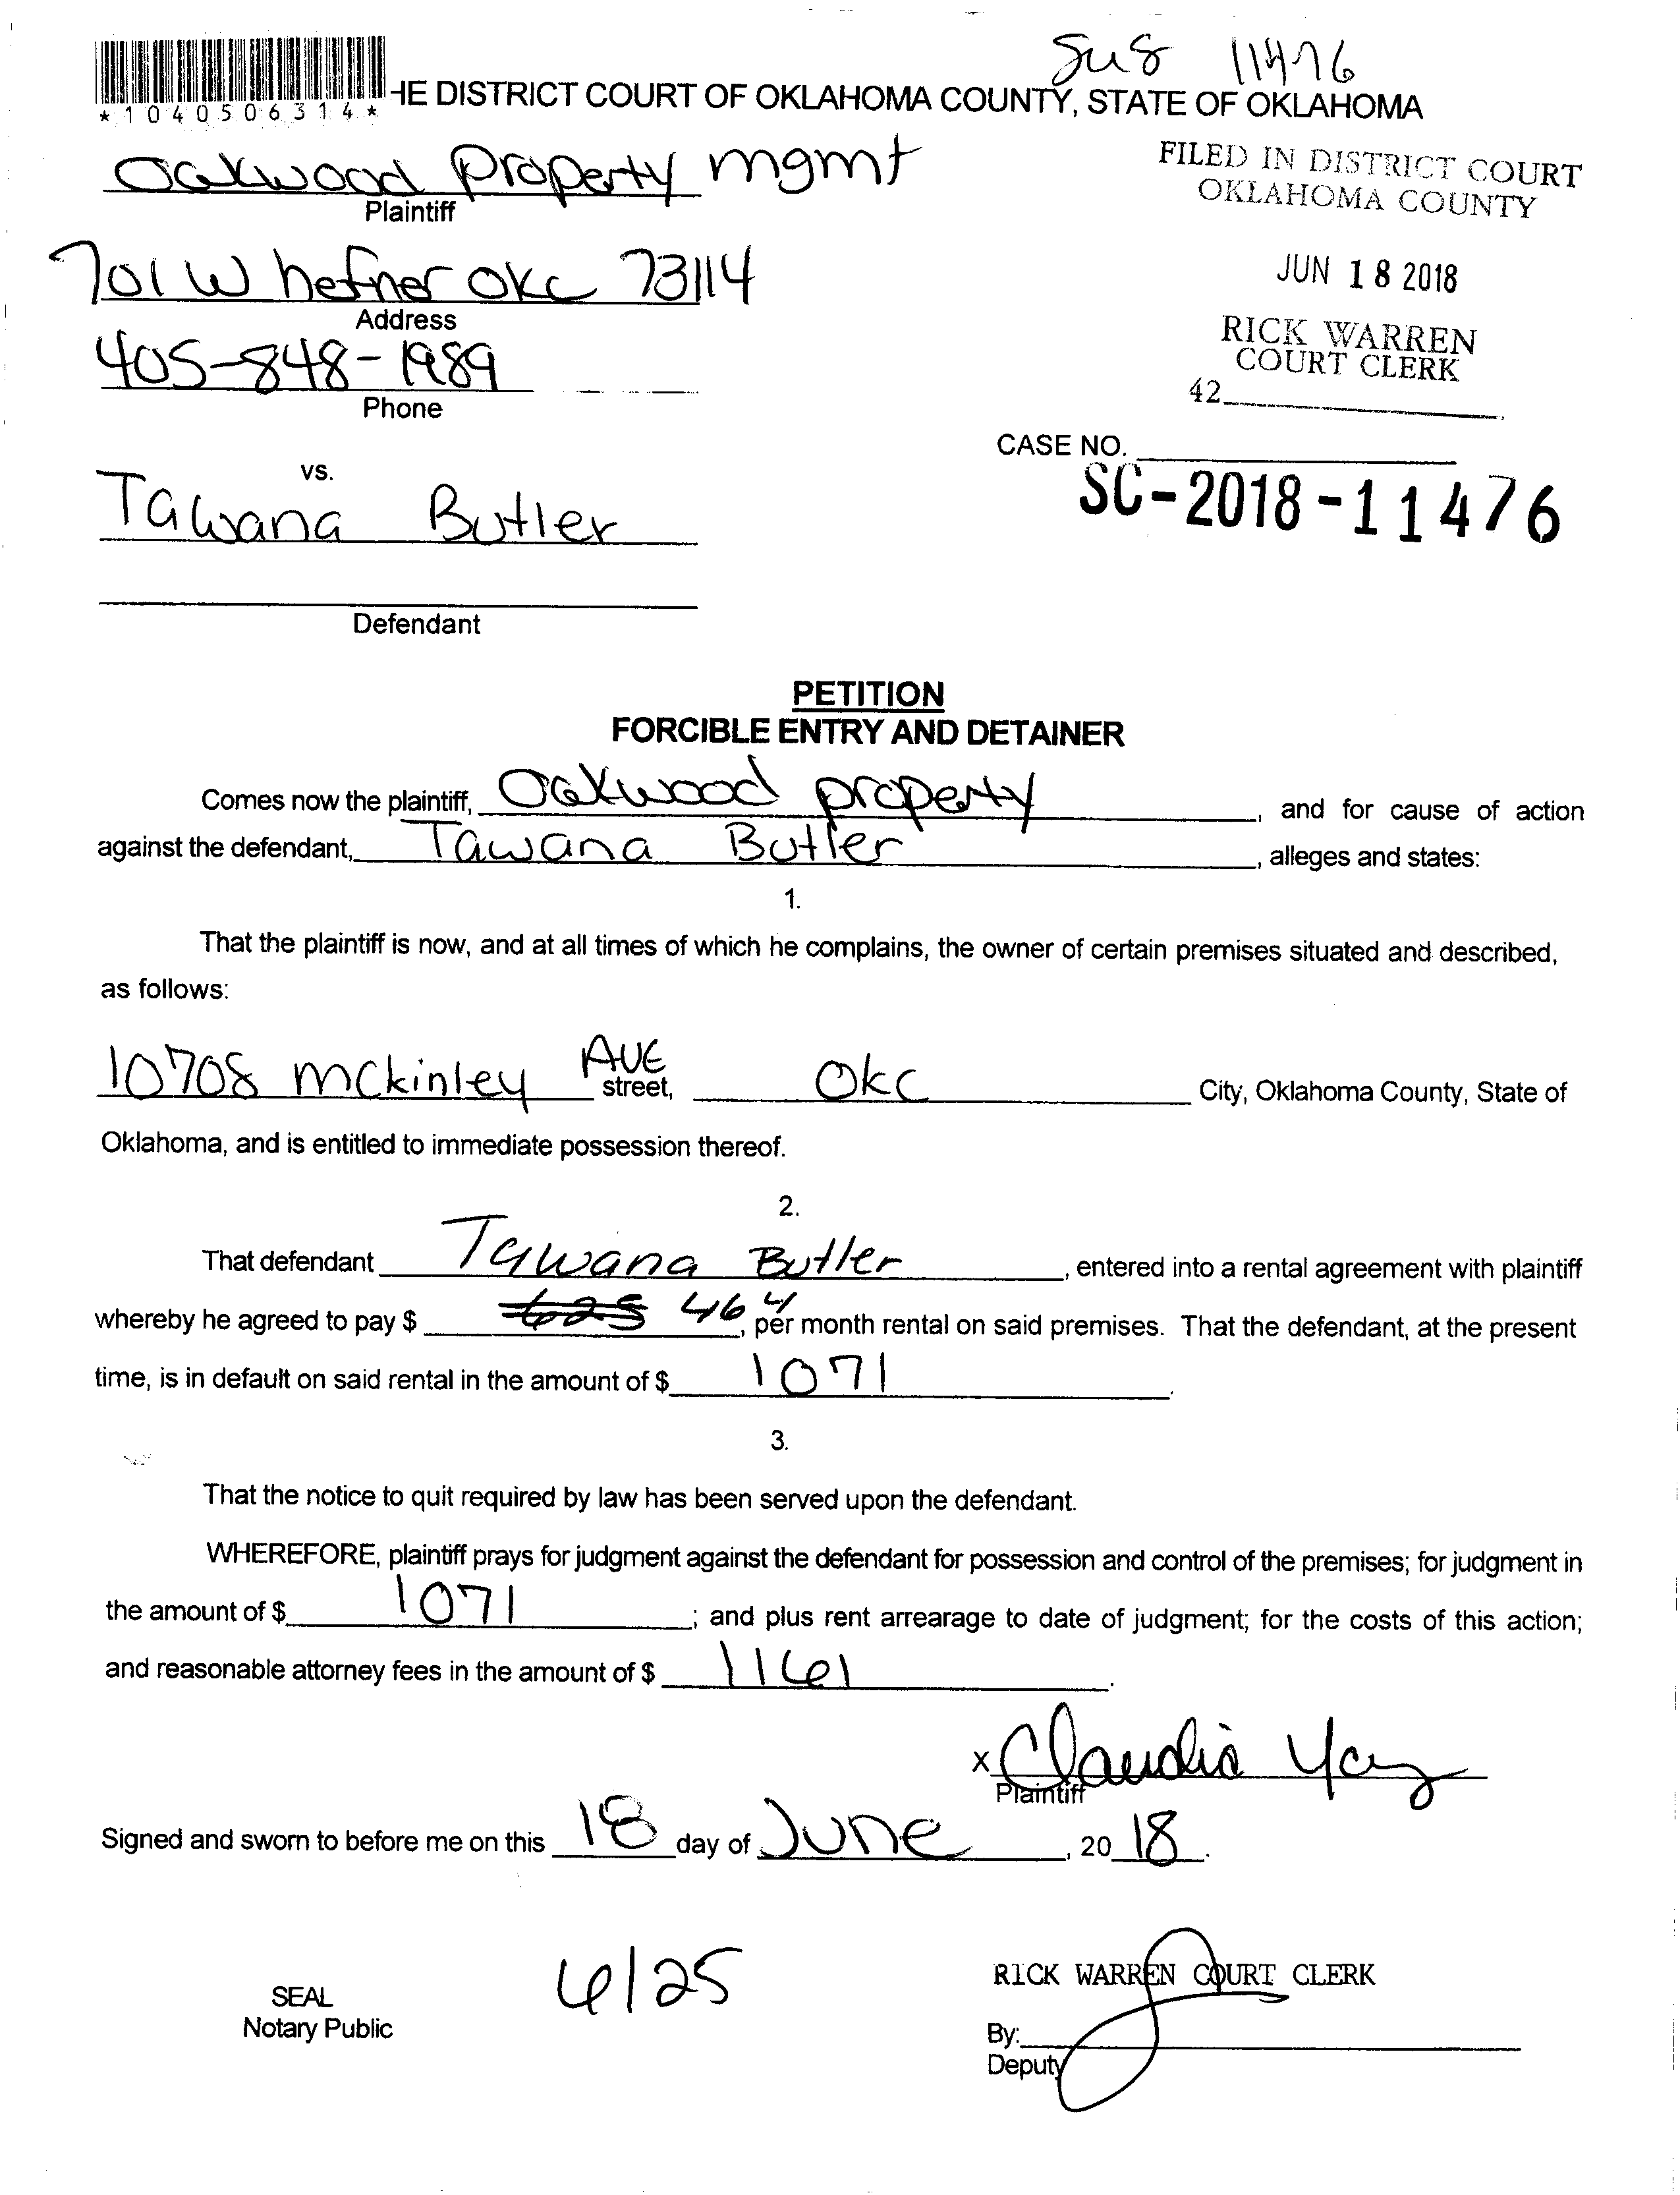 SC-2018-11476
*1040506314*
HE DISTRICT COURT OF OKLAHOMA COUNTY, STATE OF OKLAHOMA
Oakwood Property mgmt
Plaintiff
FILED IN DISTRICT COURT
OKLAHOMA COUNTY
701 W hefner OKC 73114
Address
JUN 18 2018
405-848-1989
Phone
RICK WARREN
COURT CLERK
42
CASE NO.
vs.
Tawana Butler
Defendant
PETITION
FORCIBLE ENTRY AND DETAINER
Comes now the plaintiff, Oakwood property, and for cause of action
against the defendant, Tawana Butler, alleges and states:
1.
That the plaintiff is now, and at all times of which he complains, the owner of certain premises situated and described,
as follows:
10708 mckinley AVE street, OKC City, Oklahoma County, State of
Oklahoma, and is entitled to immediate possession thereof.
2.
That defendant Tawana Butler, entered into a rental agreement with plaintiff
whereby he agreed to pay $ 625 464, per month rental on said premises. That the defendant, at the present
time, is in default on said rental in the amount of $ 1071.
3.
That the notice to quit required by law has been served upon the defendant.
WHEREFORE, plaintiff prays for judgment against the defendant for possession and control of the premises; for judgment in
the amount of $ 1071; and plus rent arrearage to date of judgment; for the costs of this action;
and reasonable attorney fees in the amount of $ 1161.
x Claudia
Plaintiff
Signed and sworn to before me on this 18 day of June, 20 18.
6/25
SEAL
Notary Public
RICK WARREN COURT CLERK
By:
Deputy